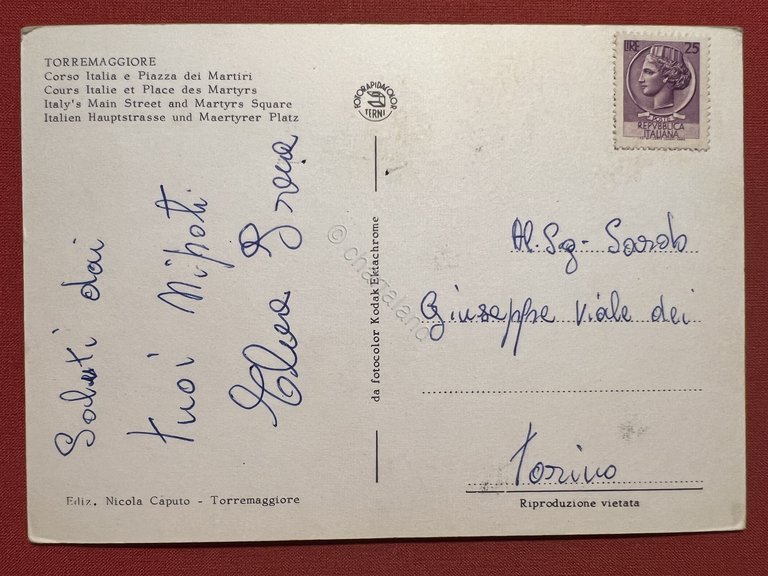 TORREMAGGIORE
Corso Italia e Piazza dei Martiri
Cours Italie et Place des Martyrs
Italy's Main Street and Martyrs Square
Italien Hauptstrasse und Maertyrer Platz
Saluti dai
tuoi Nipoti
Elena Grazia
Ediz. Nicola Caputo - Torremaggiore
FOTORAPIDACOLOR
TERNI
da fotocolor Kodak Ektachrome
© cartaland
LIRE 25
POSTE
REPVBBLICA
ITALIANA
Al. Sg- Sardo
Giuseppe Viale dei
Torino
Riproduzione vietata